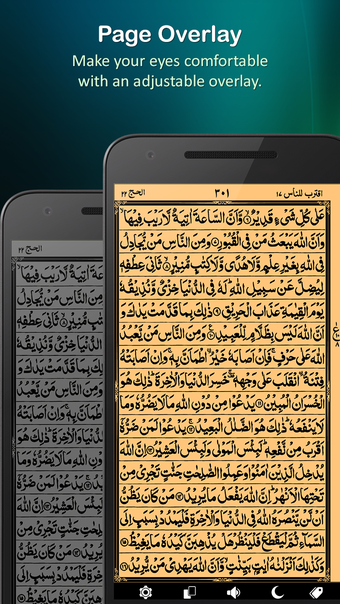 Page Overlay
Make your eyes comfortable
with an adjustable overlay.
الحـج ٢٢
٣٠١
اقترب للناس ١٧
عَلٰى كُلِّ شَىْءٍ قَدِيْرٌ ۙ وَّاَنَّ السَّاعَةَ اٰتِيَةٌ لَّا رَيْبَ فِيْهَا ۙ
وَاَنَّ اللّٰهَ يَبْعَثُ مَنْ فِى الْقُبُوْرِ وَمِنَ النَّاسِ مَنْ يُّجَادِلُ
فِى اللّٰهِ بِغَيْرِ عِلْمٍ وَّلَا هُدًى وَّلَا كِتٰبٍ مُّنِيْرٍ ۙ ثَانِىَ عِطْفِهٖ
لِيُضِلَّ عَنْ سَبِيْلِ اللّٰهِ ؕ لَهٗ فِى الدُّنْيَا خِزْىٌ وَّنُذِيْقُهٗ
يَوْمَ الْقِيٰمَةِ عَذَابَ الْحَرِيْقِ ذٰلِكَ بِمَا قَدَّمَتْ يَدٰكَ وَ
اَنَّ اللّٰهَ لَيْسَ بِظَلَّامٍ لِّلْعَبِيْدِ وَمِنَ النَّاسِ مَنْ يَّعْبُدُ
اللّٰهَ عَلٰى حَرْفٍ ۚ فَاِنْ اَصَابَهٗ خَيْرُ ۨاطْمَاَنَّ بِهٖ ۚ وَاِنْ اَصَابَتْهُ
فِتْنَةُ ۨانْقَلَبَ عَلٰى وَجْهِهٖ ۚ خَسِرَ الدُّنْيَا وَالْاٰخِرَةَ ؕ ذٰلِكَ هُوَ
الْخُسْرَانُ الْمُبِيْنُ يَدْعُوْا مِنْ دُوْنِ اللّٰهِ مَا لَا يَضُرُّهٗ وَمَا
لَا يَنْفَعُهٗ ؕ ذٰلِكَ هُوَ الضَّلٰلُ الْبَعِيْدُ ۚ يَدْعُوْا لَمَنْ ضَرُّهٗۤ
اَقْرَبُ مِنْ نَّفْعِهٖ ؕ لَبِئْسَ الْمَوْلٰى وَلَبِئْسَ الْعَشِيْرُ اِنَّ اللّٰهَ
يُدْخِلُ الَّذِيْنَ اٰمَنُوْا وَعَمِلُوا الصّٰلِحٰتِ جَنّٰتٍ تَجْرِىْ مِنْ
تَحْتِهَا الْاَنْهٰرُ ؕ اِنَّ اللّٰهَ يَفْعَلُ مَا يُرِيْدُ مَنْ كَانَ يَظُنُّ
اَنْ لَّنْ يَّنْصُرَهُ اللّٰهُ فِى الدُّنْيَا وَالْاٰخِرَةِ فَلْيَمْدُدْ بِسَبَبٍ اِلَى
السَّمَآءِ ثُمَّ لْيَقْطَعْ فَلْيَنْظُرْ هَلْ يُذْهِبَنَّ كَيْدُهٗ مَا يَغِيْظُ
وَكَذٰلِكَ اَنْزَلْنٰهُ اٰيٰتٍۢ بَيِّنٰتٍ ۙ وَّاَنَّ اللّٰهَ يَهْدِىْ مَنْ يُّرِيْدُ
الحـج ٢٢